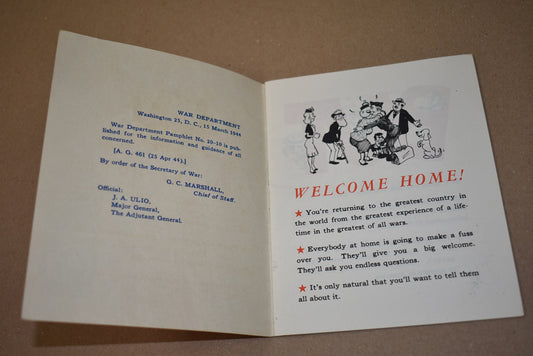 WAR DEPARTMENT
Washington 25, D. C., 15 March 1944
War Department Pamphlet No. 20-10 is pub-
lished for the information and guidance of all
concerned.
[A. G. 461 (25 Apr 44).]
By order of the Secretary of War:
G. C. MARSHALL,
Chief of Staff.
Official:
J. A. ULIO,
Major General,
The Adjutant General.
WELCOME HOME!
★ You're returning to the greatest country in
the world from the greatest experience of a life-
time in the greatest of all wars.
★ Everybody at home is going to make a fuss
over you. They'll give you a big welcome.
They'll ask you endless questions.
★ It's only natural that you'll want to tell them
all about it.